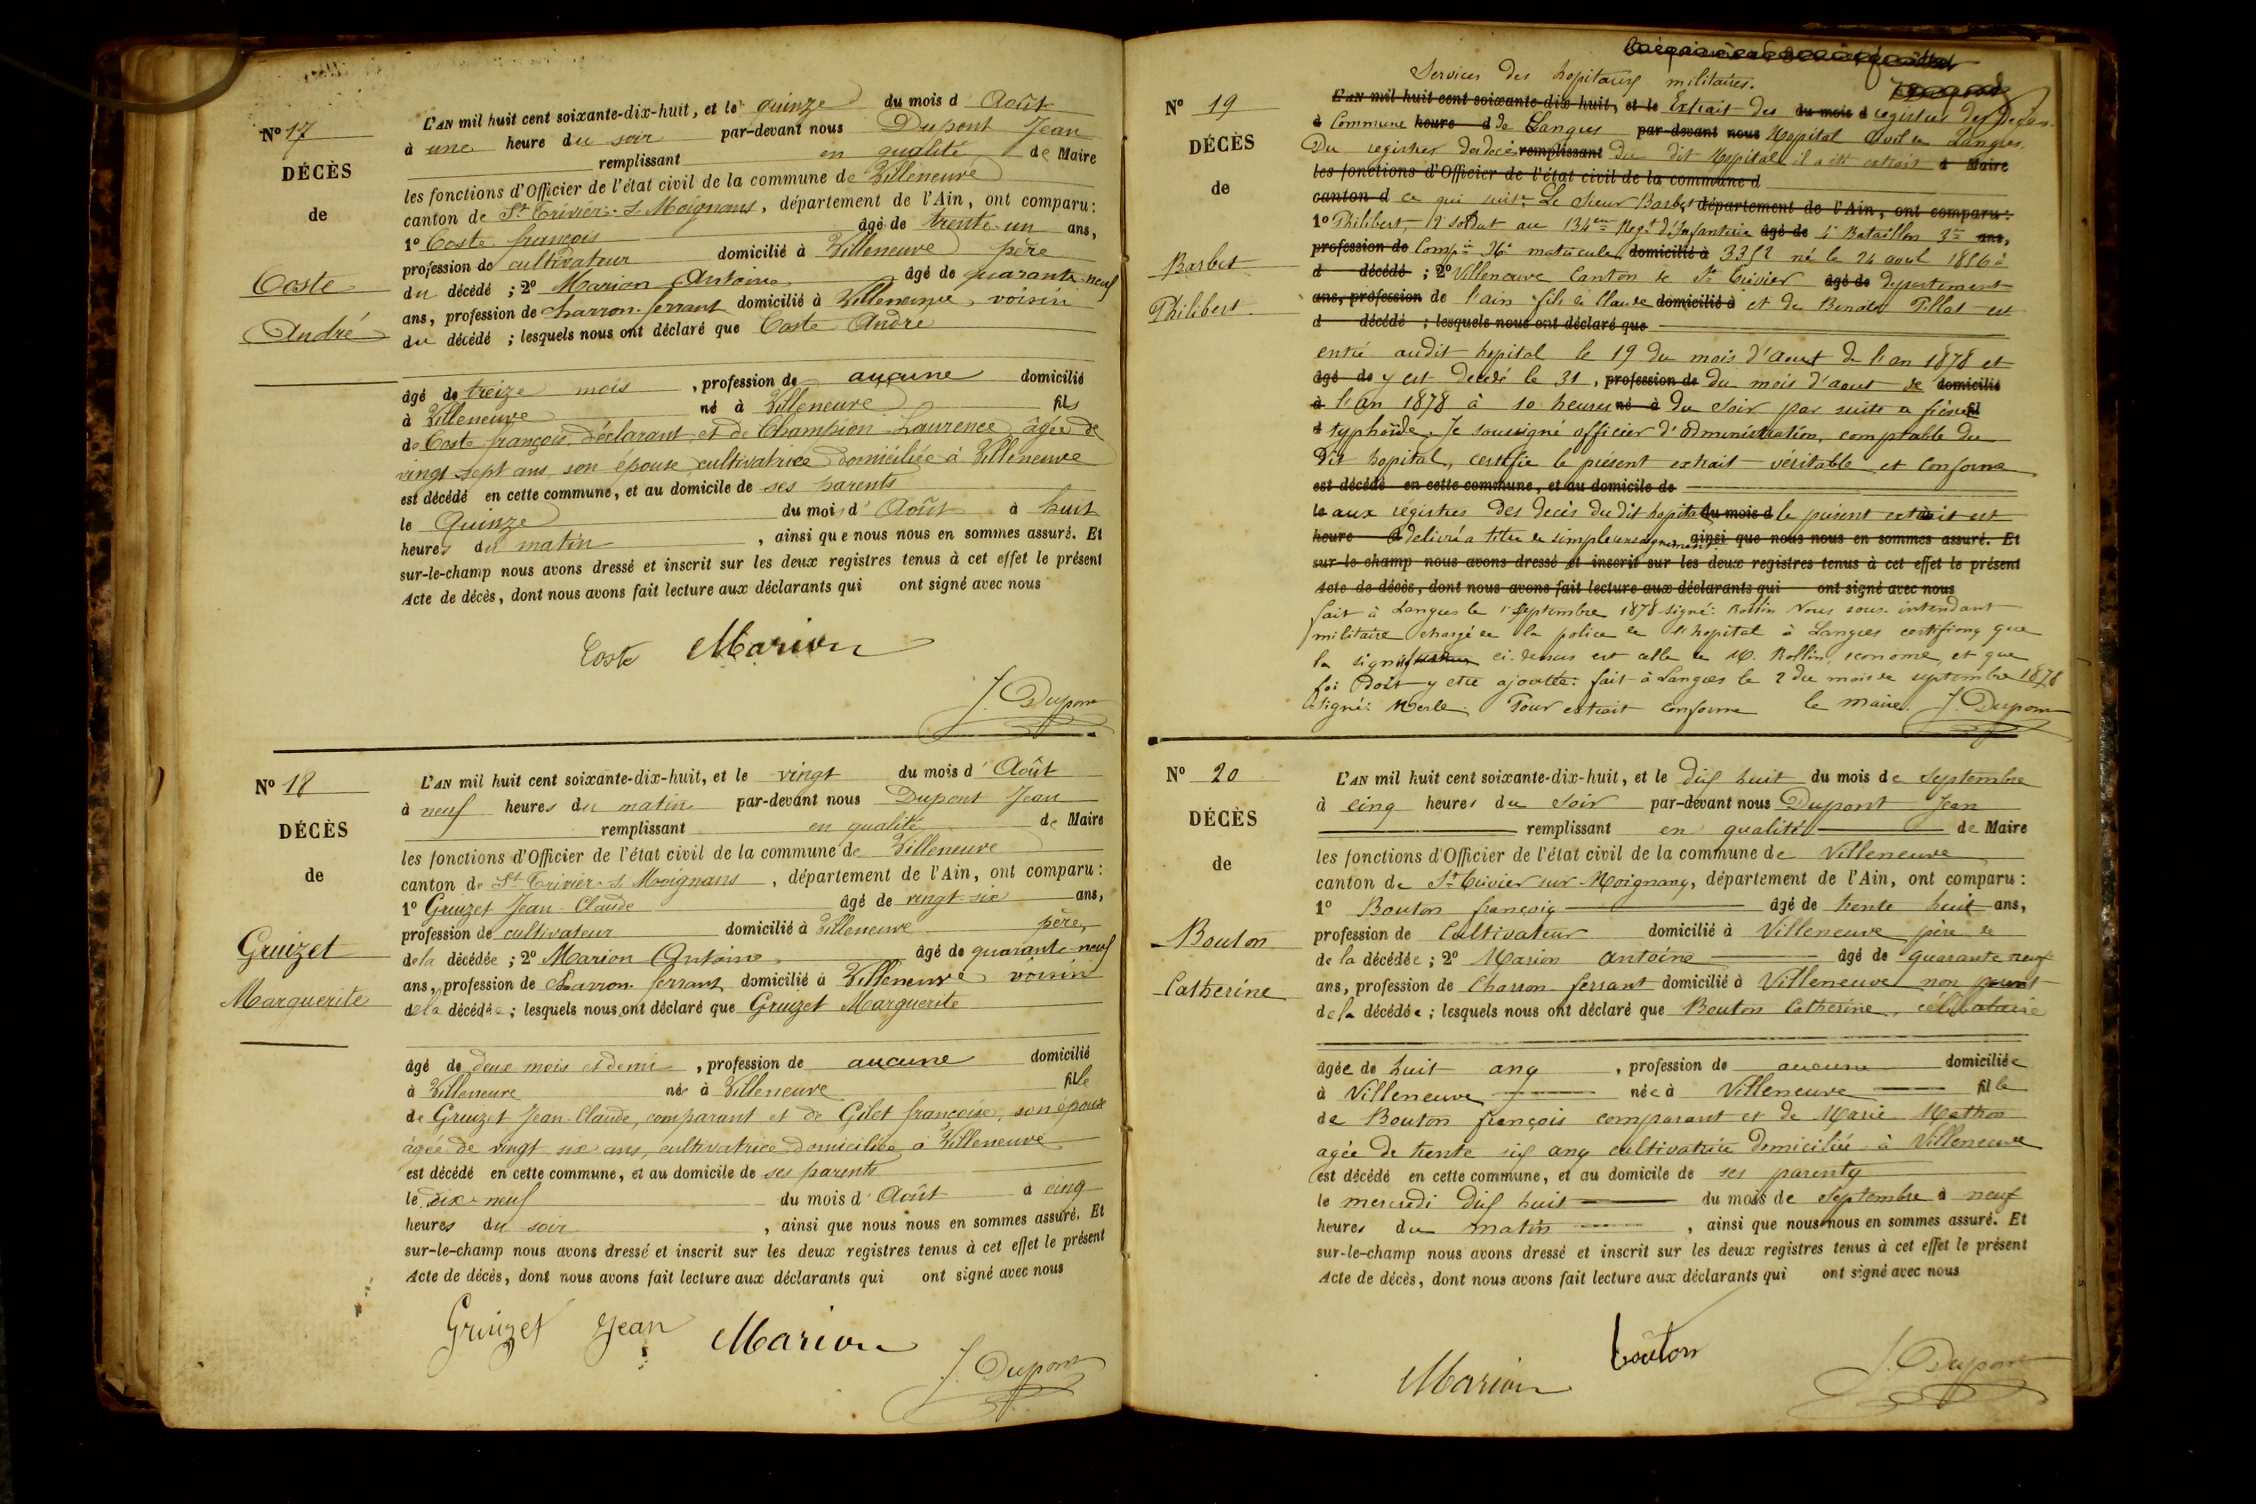 Nº 17
DÉCÈS
de
Coste
André
L'AN mil huit cent soixante-dix-huit, et le quinze du mois d'Août
à une heure du soir par-devant nous Dupont Jean
remplissant en qualité de Maire
les fonctions d'Officier de l'état civil de la commune de Villeneuve
canton de St Trivier s. Moignans, département de l'Ain, ont comparu :
1º Coste françois âgé de trente un ans,
profession de cultivateur domicilié à Villeneuve père
du décédé ; 2º Marion Antoine âgé de quarante neuf
ans, profession de charron ferrant domicilié à Villeneuve voisin
du décédé ; lesquels nous ont déclaré que Coste André
âgé de treize mois, profession de aucune domicilié
à Villeneuve né à Villeneuve fils
de Coste françois déclarant et de Champion Laurence âgée de
vingt sept ans son épouse cultivatrice domiciliée à Villeneuve
est décédé en cette commune, et au domicile de ses parents
le Quinze du mois d'Août à huit
heures du matin, ainsi que nous nous en sommes assuré. Et
sur-le-champ nous avons dressé et inscrit sur les deux registres tenus à cet effet le présent
Acte de décès, dont nous avons fait lecture aux déclarants qui ont signé avec nous
Coste Marion
J. Dupont
Nº 18
DÉCÈS
de
Gruizet
Marguerite
L'AN mil huit cent soixante-dix-huit, et le vingt du mois d'Août
à neuf heures du matin par-devant nous Dupont Jean
remplissant en qualité de Maire
les fonctions d'Officier de l'état civil de la commune de Villeneuve
canton de St Trivier s. Moignans, département de l'Ain, ont comparu :
1º Gruizet Jean Claude âgé de vingt six ans,
profession de cultivateur domicilié à Villeneuve père,
de la décédée ; 2º Marion Antoine âgé de quarante neuf
ans, profession de charron ferrant domicilié à Villeneuve voisin
de la décédée ; lesquels nous ont déclaré que Gruizet Marguerite
âgé de deux mois et demi, profession de aucune domicilié
à Villeneuve née à Villeneuve fille
de Gruizet Jean-Claude, comparant et de Gilet françoise, son épouse
âgée de vingt six ans, cultivatrice domiciliée à Villeneuve
est décédé en cette commune, et au domicile de ses parents
le dix-neuf du mois d'Août à cinq
heures du soir, ainsi que nous nous en sommes assuré. Et
sur-le-champ nous avons dressé et inscrit sur les deux registres tenus à cet effet le présent
Acte de décès, dont nous avons fait lecture aux déclarants qui ont signé avec nous
Gruizet Jean Marion
J. Dupont
Nº 19
DÉCÈS
de
Barbet
Philibert
Services des hopitaux militaires.
L'AN mil huit cent soixante-dix-huit, et le Extrait des du mois d registres des Décès.
à Commune heure d de Langres par-devant nous Hopital Civil de Langres
Du registres des décès remplissant du dit Hopital il a été extrait d Maire
les fonctions d'Officier de l'état civil de la commune d
canton d ce qui suit. Le Sieur Barbet département de l'Ain, ont comparu :
1º Philibert, soldat au 134ème Regt d'Infanterie âgé de 4e Bataillon 3me ans,
profession de Compie matricule domicilié à 3352 né le 24 aout 1856 à
d décédé ; 2º Villeneuve Canton de St Trivier âgé de departement
ans, profession de l'ain fils de Claude domicilié à et de Benoite Pillet est
d décédé ; lesquels nous ont déclaré que
entré audit hopital le 19 du mois d'aout de l'an 1878 et
âgé de y est Decédé le 31, profession de du mois d'aout de domicilié
à l'an 1878 à 10 heures né à du soir par suite de fièvre fil
d typhoïde. Je soussigné officier d'administration, comptable du
dit hopital, certifie le présent extrait véritable et conforme
est décédé en cette commune, et au domicile de
le aux registres des decès du dit hopital du mois d le présent extrait est
heure d delivré a titre de simple renseignement. ainsi que nous nous en sommes assuré. Et
sur-le-champ nous avons dressé et inscrit sur les deux registres tenus à cet effet le présent
Acte de décès, dont nous avons fait lecture aux déclarants qui ont signé avec nous
fait à Langres le 1er Septembre 1878 signé: Rollin Nous sous-intendant
militaire chargé de la police de l'hopital à Langres certifions que
la signature ci-dessus est celle de M. Rollin, econome, et que
foi Doit y etre ajoutée: fait à Langres le 2 du mois de septembre 1878
Signé: Merle. Pour extrait conforme le maire. J. Dupont
Nº 20
DÉCÈS
de
Bouton
Catherine
L'AN mil huit cent soixante-dix-huit, et le dix huit du mois de Septembre
à cinq heures du soir par-devant nous Dupont Jean
remplissant en qualité de Maire
les fonctions d'Officier de l'état civil de la commune de Villeneuve
canton de St Trivier sur Moignans, département de l'Ain, ont comparu :
1º Bouton françois âgé de trente huit ans,
profession de Cultivateur domicilié à Villeneuve père de
de la décédée ; 2º Marion Antoine âgé de quarante neuf
ans, profession de Charron ferrant domicilié à Villeneuve non parent
de la décédée ; lesquels nous ont déclaré que Bouton Catherine, célibataire
âgée de huit ans, profession de aucune domiciliée
à Villeneuve née à Villeneuve fille
de Bouton françois comparant et de Marie Mathon
agée de trente six ans cultivatrice Domiciliée à Villeneuve
est décédé en cette commune, et au domicile de ses parents
le mercredi dix huit du mois de Septembre à neuf
heures du matin, ainsi que nous nous en sommes assuré. Et
sur-le-champ nous avons dressé et inscrit sur les deux registres tenus à cet effet le présent
Acte de décès, dont nous avons fait lecture aux déclarants qui ont signé avec nous
Marion bouton J. Dupont